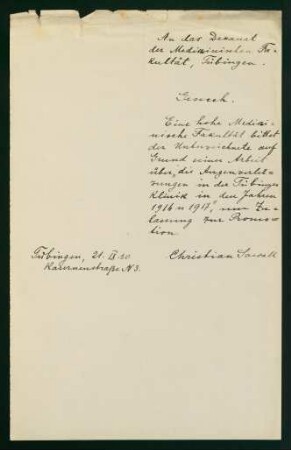 An das Dekanat
der Medizinischen Fa-
kultät, Tübingen.
Gesuch.
Eine hohe Medizi-
nische Fakultät bittet
der Unterzeichnete auf
Grund seiner Arbeit
über "die Augenverletz-
ungen in der Tübinger
Klinik in den Jahren
1916 u 1917", um Zu-
lassung zur Promo-
tion.
Tübingen, 21. IX 20
Kasernenstraße N 3.
Christian